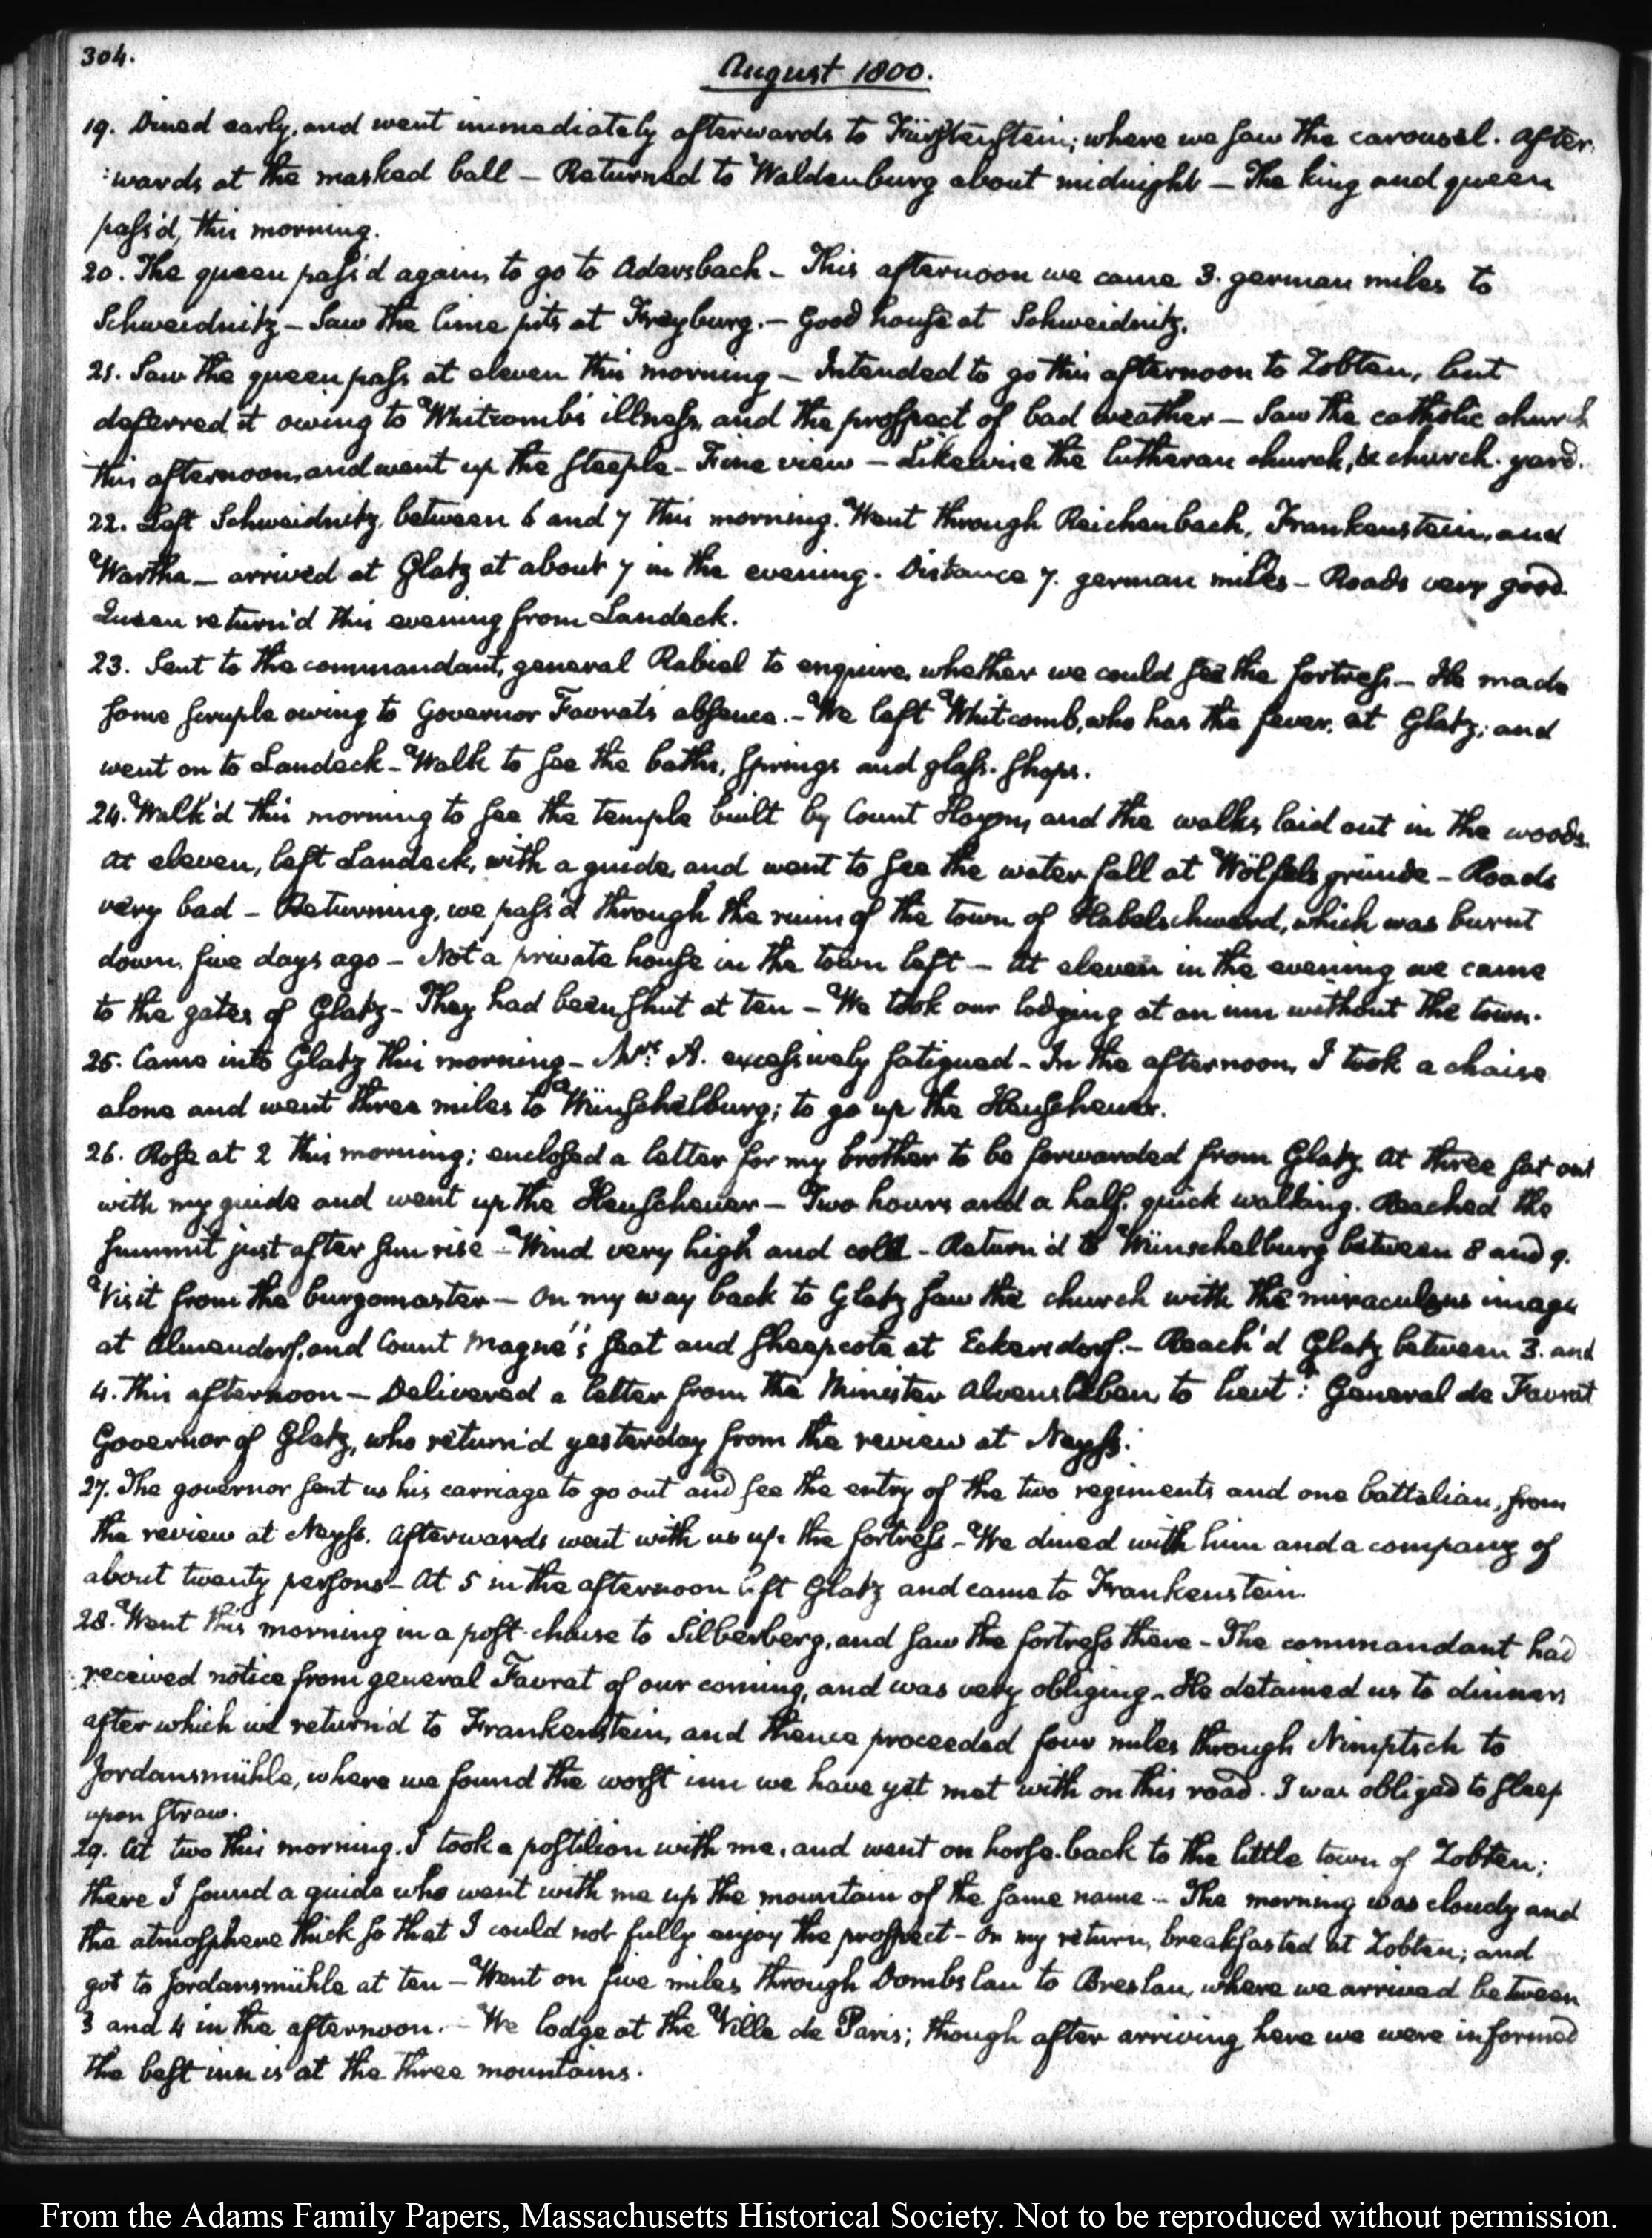 304.
August 1800.
19. Dined early, and went immediately afterwards to Fürstenstein; where we saw the carousel. After:
:wards at the masked ball — Returned to Waldenburg about midnight — The king and queen
pass'd, this morning.
20. The queen pass'd again, to go to Adersbach — This afternoon we came 3. german miles to
Schweidnitz — Saw the lime pits at Freyburg. — Good house at Schweidnitz.
21. Saw the queen pass at eleven this morning — Intended to go this afternoon to Zobten, but
deferred it owing to Whitcomb's illness, and the prospect of bad weather — Saw the catholic church
this afternoon, and went up the steeple — Fine view — Likewise the lutheran church, & church-yard.
22. Left Schweidnitz, between 6 and 7 this morning. Went through Reichenbach, Frankenstein, and
Wartha — arrived at Glatz at about 7 in the evening. Distance 7. german miles — Roads very good.
Queen return'd this evening from Landeck.
23. Sent to the commandant, general Rabiel to enquire, whether we could see the fortress — He made
some scruple owing to Governor Favrat's absence. — We left Whitcomb, who has the fever, at Glatz; and
went on to Landeck — Walk to see the baths, springs and glass-shops.
24. Walk'd this morning to see the temple built by Count Hoym, and the walks laid out in the woods.
At eleven, left Landeck, with a guide, and went to see the water fall at Wölfelsgrunde — Roads
very bad — Returning, we pass'd through the ruins of the town of Habelschwerd, which was burnt
down, five days ago — Not a private house in the town left — At eleven in the evening we came
to the gates of Glatz — They had been shut at ten — We took our lodging at an inn without the town.
25. Came into Glatz this morning — Mrs. A. excessively fatigued — In the afternoon, I took a chaise
alone and went three miles to Wünschelburg; to go up the Heuscheuer.
26. Rose at 2 this morning; enclosed a letter for my brother to be forwarded from Glatz. At three sat out
with my guide and went up the Heuscheuer — Two hours and a half, quick walking. Reached the
summit just after sun rise — Wind very high and cold — Return'd to Wünschelburg between 8 and 9.
Visit from the burgomaster — On my way back to Glatz saw the church with the miraculous image
at Almendorf, and Count Magne's seat and sheepcote at Eckersdorf. — Reach'd Glatz between 3. and
4. this afternoon — Delivered a letter from the Minister Alvensleben, to lieut: General de Favrat
Governor of Glatz, who return'd yesterday from the review at Neyss.
27. The governor sent us his carriage to go out and see the entry of the two regiments and one battalion, from
the review at Neyss. Afterwards went with us up the fortress — We dined with him and a company of
about twenty persons — At 5 in the afternoon left Glatz and came to Frankenstein.
28. Went this morning in a post-chaise to Silberberg, and saw the fortress there — The commandant had
received notice from general Favrat of our coming, and was very obliging — He detained us to dinner;
after which we return'd to Frankenstein, and thence proceeded four miles through Nimptsch to
Jordansmühle, where we found the worst inn we have yet met with on this road. I was obliged to sleep
upon straw.
29. At two this morning, I took a postilion with me, and went on horse-back to the little town of Zobten;
there I found a guide who went with me up the mountain of the same name — The morning was cloudy and
the atmosphere thick so that I could not fully enjoy the prospect — On my return, breakfasted at Zobten; and
got to Jordansmühle at ten — Went on five miles through Dombslau to Breslau, where we arrived between
3 and 4 in the afternoon. — We lodge at the Ville de Paris; though after arriving here we were informed
the best inn is at the three mountains.
From the Adams Family Papers, Massachusetts Historical Society. Not to be reproduced without permission.